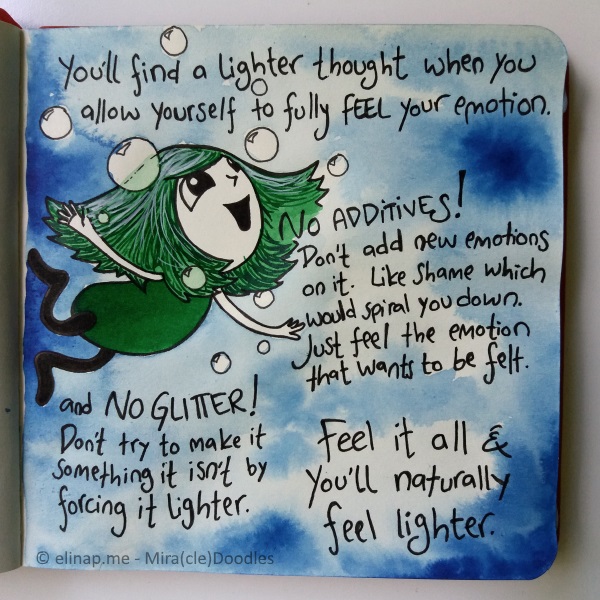 You'll find a lighter thought when you
allow yourself to fully FEEL your emotion.
NO ADDITIVES!
Don't add new emotions
on it. Like shame which
would spiral you down.
Just feel the emotion
that wants to be felt.
and NO GLITTER!
Don't try to make it
something it isn't by
forcing it lighter.
Feel it all &
You'll naturally
feel lighter.
© elinap.me - Mira(cle)Doodles